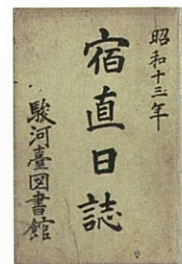 昭和十三年
宿直日誌
駿河臺圖書館